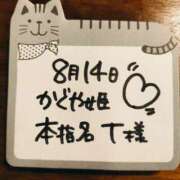 8月14日
かどや姫
本指名 T様